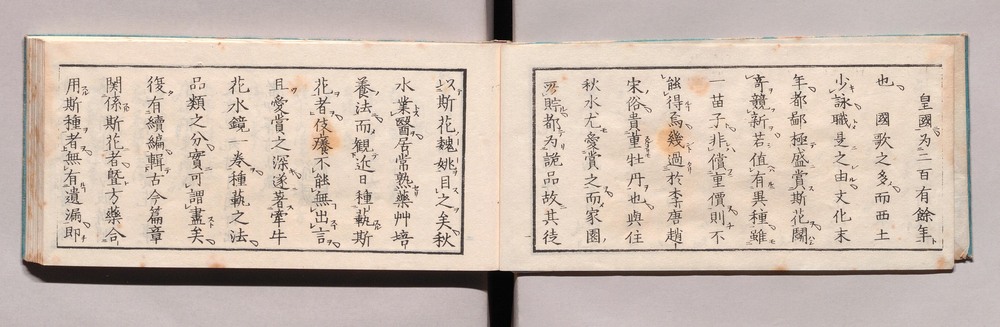 皇國為二百有餘年
也 國歌之多而西土
少詠職是之由文化末
年都鄙極盛賞斯花闘
奇競新若值有異種雖
一苗子非償重價則不
能得焉幾過於李唐趙
宋俗貴重牡丹也與住
秋水尤愛賞之而家園
所貯都為詭品故其徒
以斯花魏姚目之矣秋
水業醫居常熟藥艸培
養法而観近日種藝斯
花者伎癢不能無出言
且愛賞之深遂著牽牛
花水鏡一巻種藝之法
品類之分實可謂盡矣
復有續編輯古今篇章
関係斯花者曁方藥合
用斯種者無有遺漏即